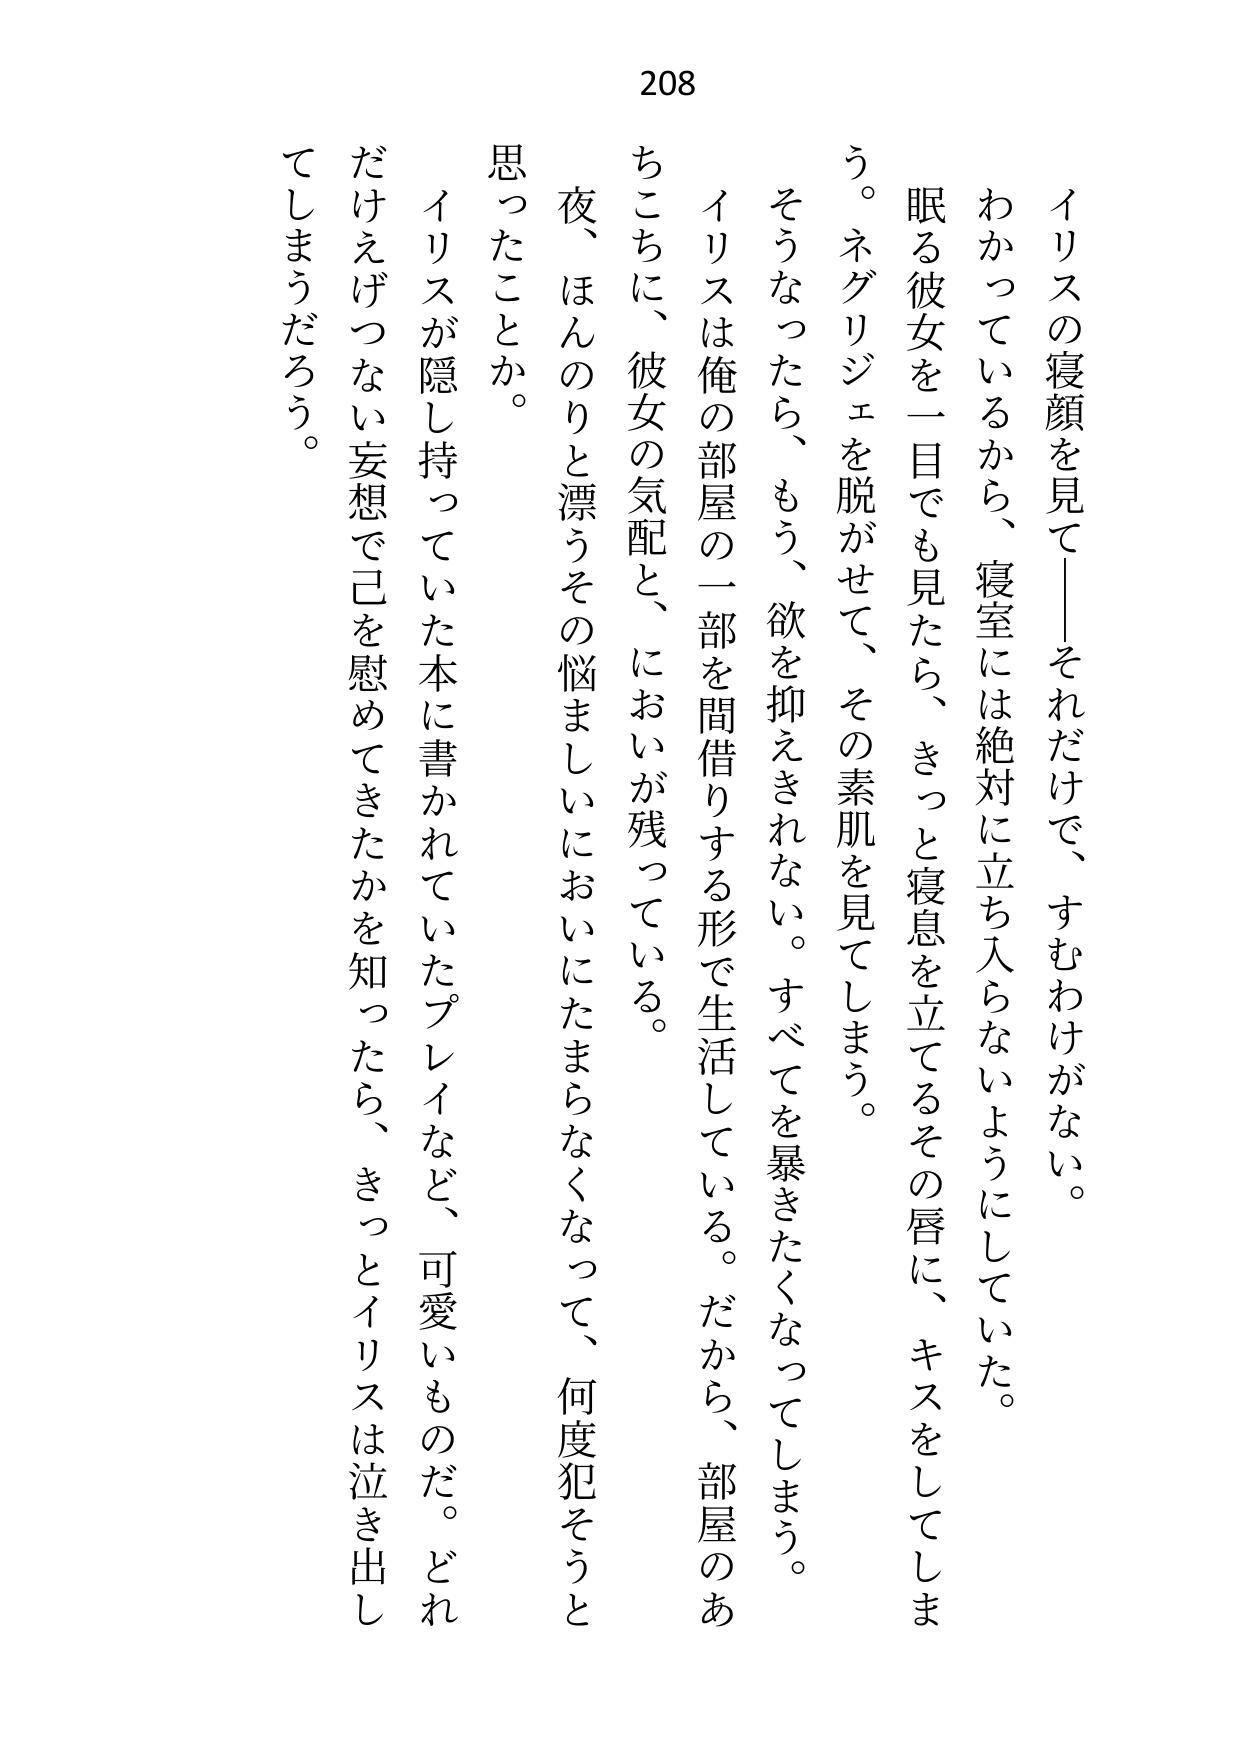 208
イリスの寝顔を見て――それだけで、すむわけがない。
わかっているから、寝室には絶対に立ち入らないようにしていた。
眠る彼女を一目でも見たら、きっと寝息を立てるその唇に、キスをしてしま
う。ネグリジェを脱がせて、その素肌を見てしまう。
そうなったら、もう、欲を抑えきれない。すべてを暴きたくなってしまう。
イリスは俺の部屋の一部を間借りする形で生活している。だから、部屋のあ
ちこちに、彼女の気配と、においが残っている。
夜、ほんのりと漂うその悩ましいにおいにたまらなくなって、何度犯そうと
思ったことか。
イリスが隠し持っていた本に書かれていたプレイなど、可愛いものだ。どれ
だけえげつない妄想で己を慰めてきたかを知ったら、きっとイリスは泣き出し
てしまうだろう。